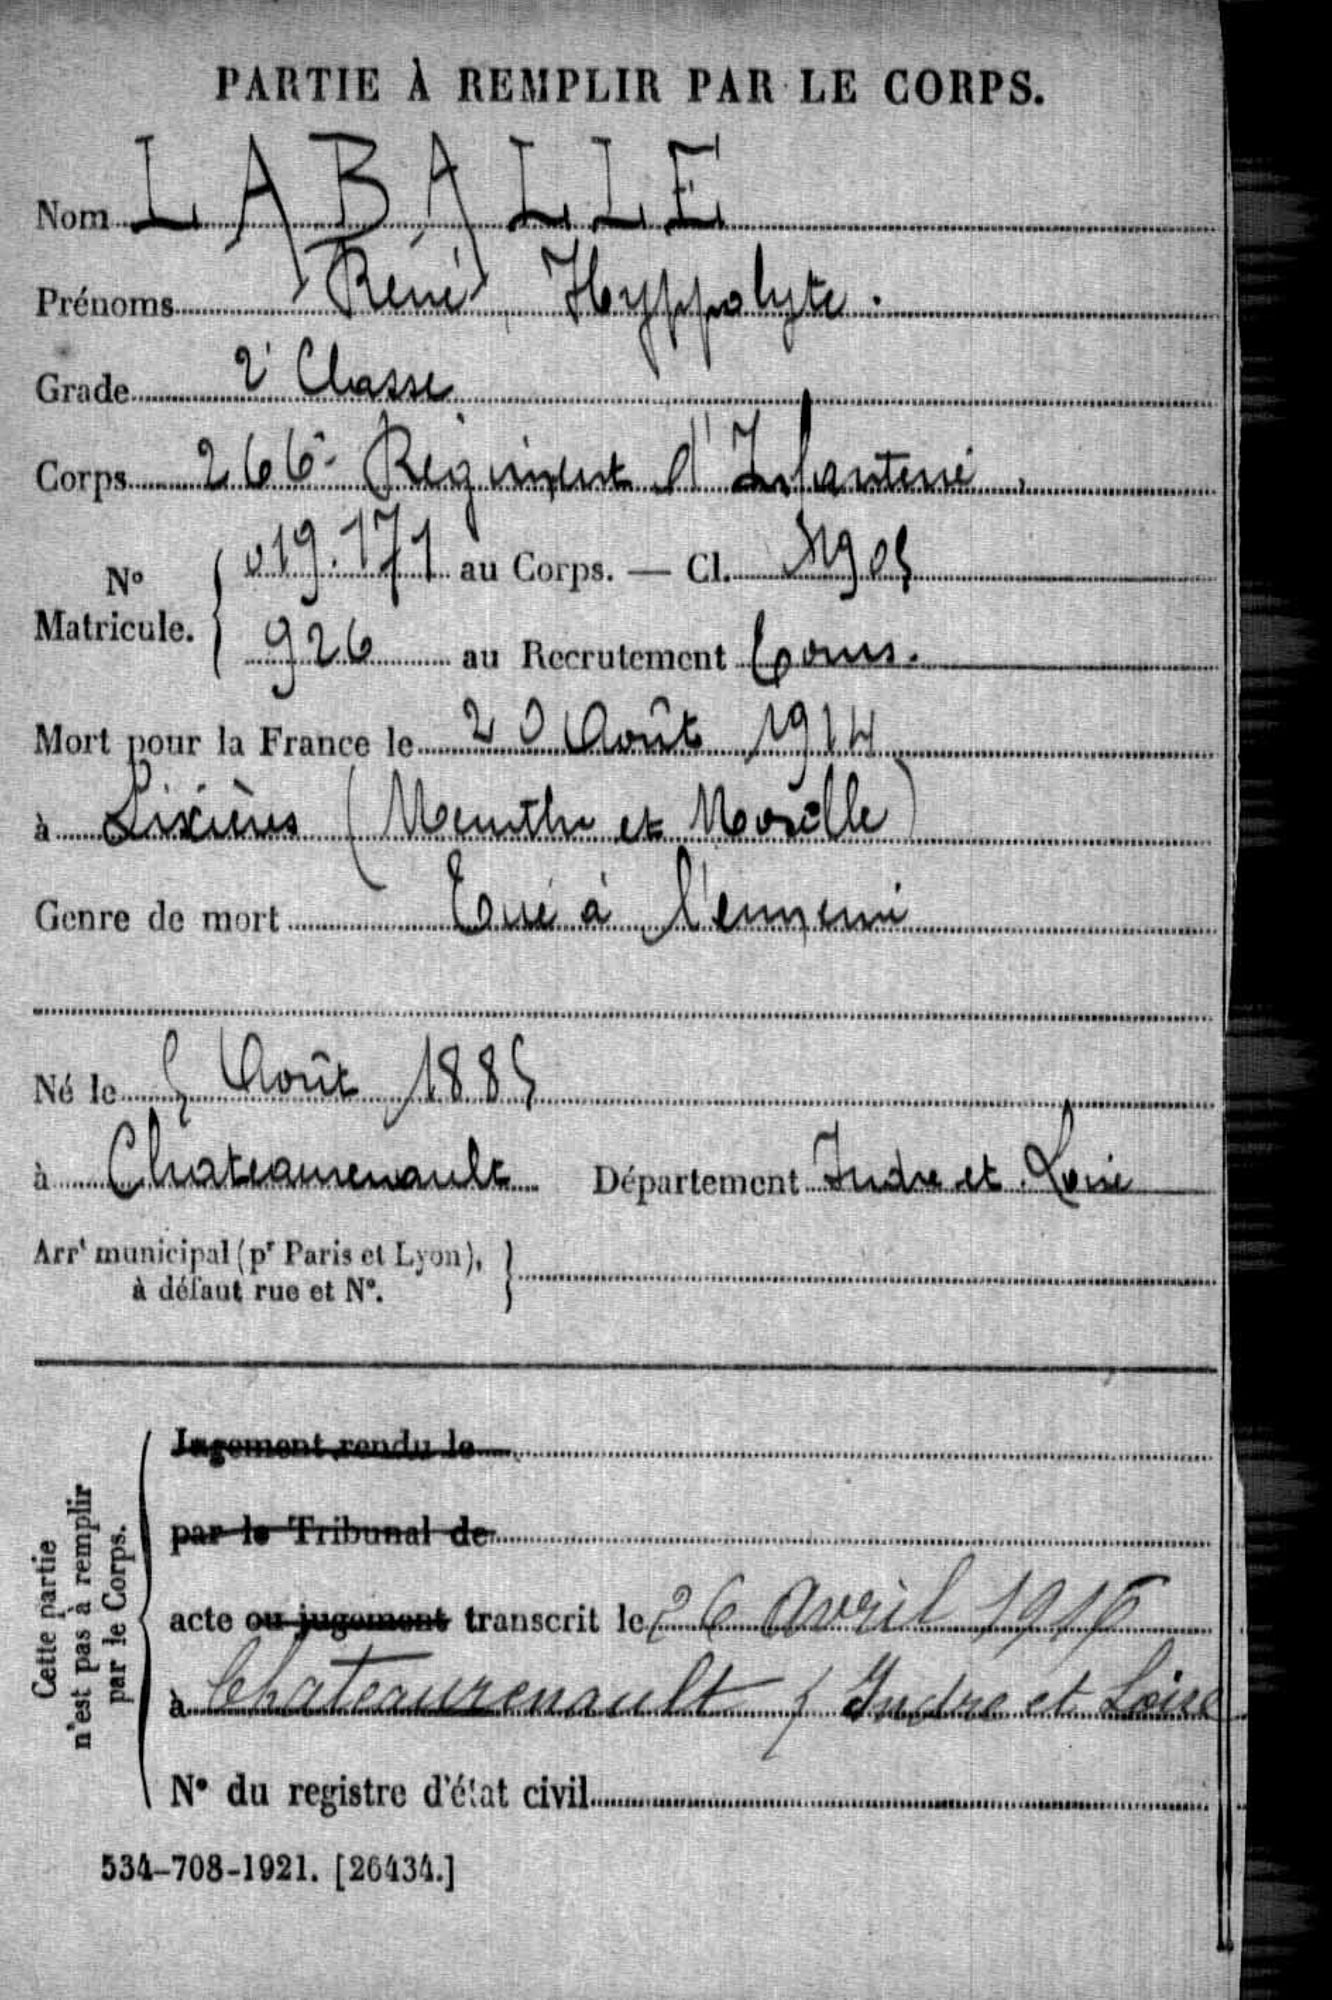 PARTIE À REMPLIR PAR LE CORPS.
Nom LABALLE
Prénoms René Hyppolyte.
Grade 2e Classe
Corps 266e Régiment d'Infanterie
N° Matricule. 019.171 au Corps. — Cl. 1905
926 au Recrutement Tours.
Mort pour la France le 20 Août 1914
à Lixières (Meurthe et Moselle)
Genre de mort Tué à l'ennemi
Né le 5 Août 1885
à Chateaurenault Département Indre et Loire
Arrt municipal (pr Paris et Lyon),
à défaut rue et N°.
Cette partie
n'est pas à remplir
par le Corps.
Jugement rendu le
par le Tribunal de
acte ou jugement transcrit le 26 avril 1916
à Chateaurenault (Indre et Loire
N° du registre d'état civil
534-708-1921. [26434.]